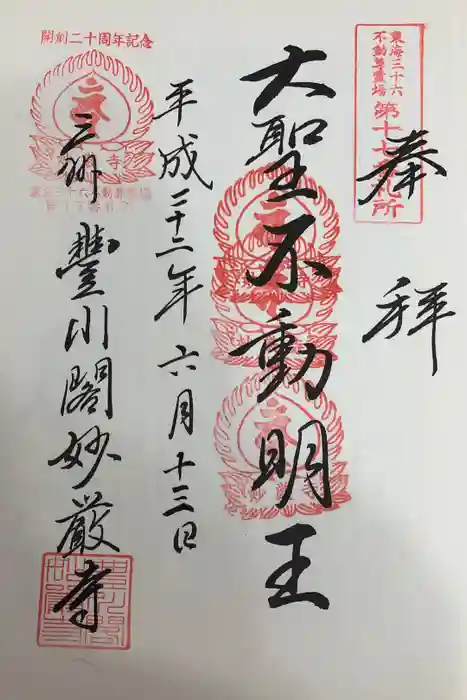 東海三十六
不動尊霊場
第十七番札所
奉拝
大聖不動明王
平成二十二年六月十三日
開創二十周年記念
三州
豐川閣妙厳寺